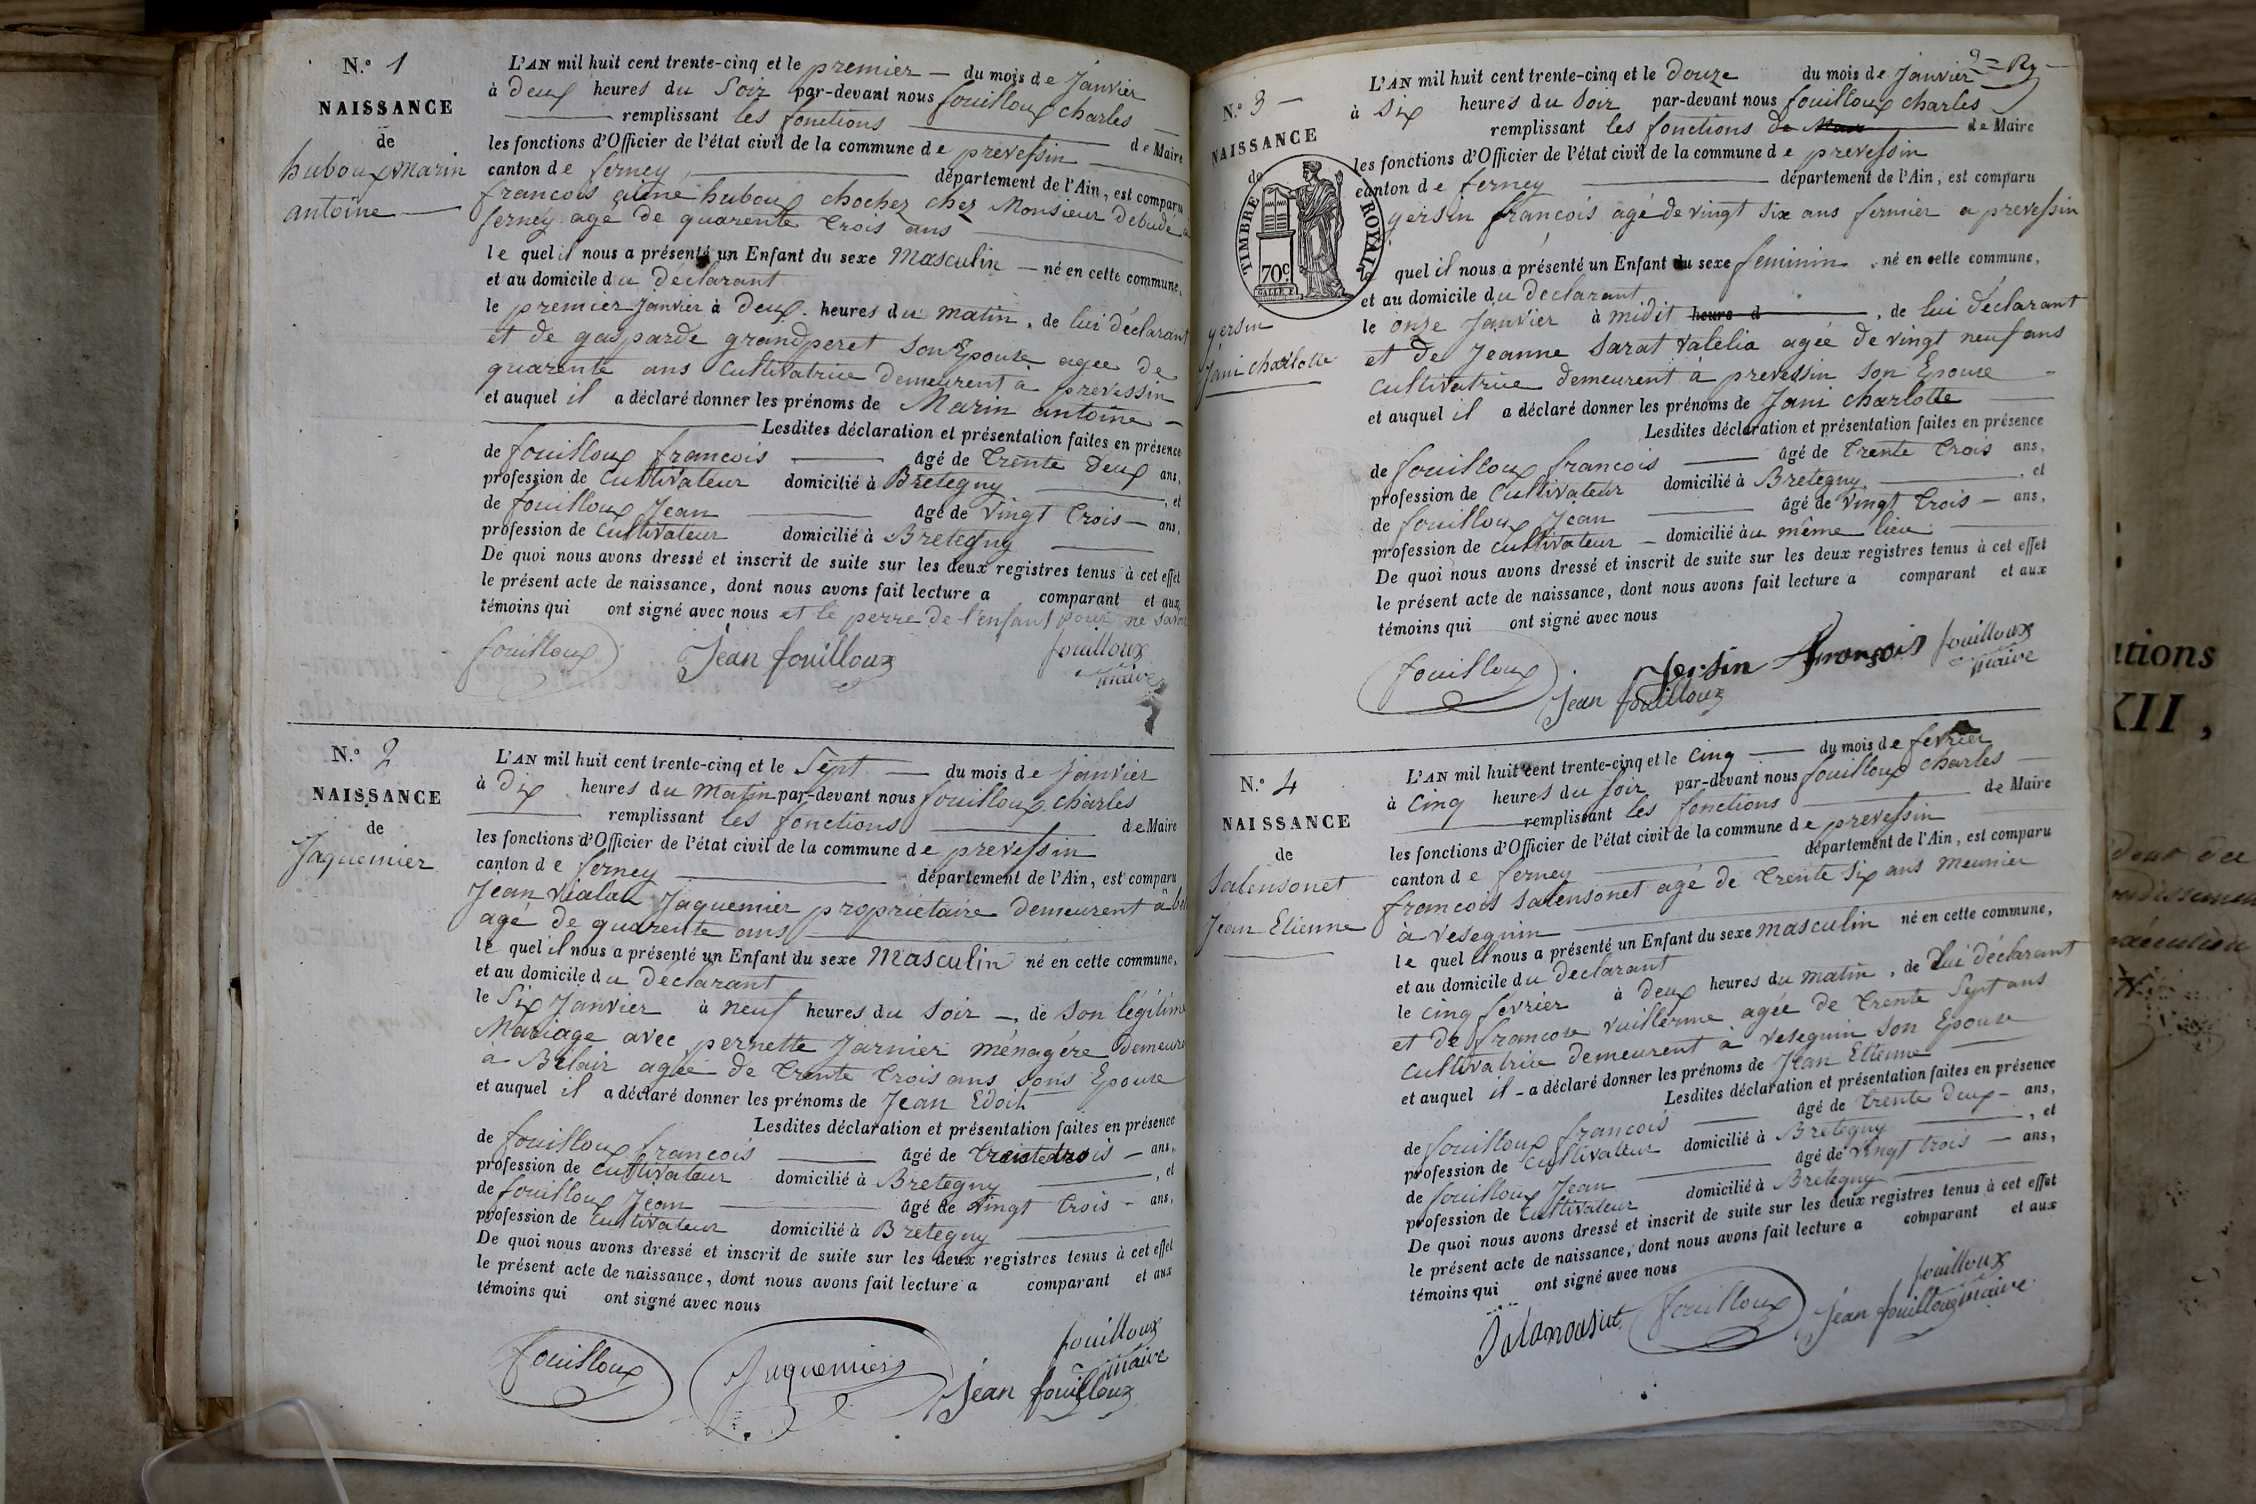 N.° 1
NAISSANCE
de
huboux Marin
antoine
L'AN mil huit cent trente-cinq et le premier — du mois de Janvier
à deux heures du Soir par-devant nous fouilloux charles
remplissant les fonctions de Maire
les fonctions d'Officier de l'état civil de la commune de prevessin
canton de ferney département de l'Ain, est comparu
francois aimé huboux chochez chez Monsieur debudé a
ferney agé de quarente trois ans
le quel il nous a présenté un Enfant du sexe Masculin — né en cette commune,
et au domicile du declarant
le premier Janvier à deux heures du matin, de lui déclarant
et de gasparde grandperet son Epouse agée de
quarente ans Cultivatrice demeurent à prevessin
et auquel il a déclaré donner les prénoms de Marin antoine —
Lesdites déclaration et présentation faites en présence
de fouilloux francois — âgé de trente deux ans,
profession de Cultivateur domicilié à Bretegny, et
de fouilloux Jean — âgé de vingt trois — ans,
profession de cultivateur domicilié à Bretegny
De quoi nous avons dressé et inscrit de suite sur les deux registres tenus à cet effet
le présent acte de naissance, dont nous avons fait lecture a comparant et aux
témoins qui ont signé avec nous et le perre de l'enfant pour ne savoir
fouilloux Jean fouilloux fouilloux
maire
N.° 2
NAISSANCE
de
Jaquemier
L'AN mil huit cent trente-cinq et le Sept — du mois de Janvier
à dix heures du Matin par-devant nous fouilloux charles
remplissant les fonctions de Maire
les fonctions d'Officier de l'état civil de la commune de prevessin
canton de ferney département de l'Ain, est comparu
Jean Jaquemier proprietaire demeurent à
agé de quarente ans
le quel il nous a présenté un Enfant du sexe Masculin né en cette commune,
et au domicile du declarant
le Six Janvier à neuf heures du Soir —, de son légitime
Mariage avec pernette Jarnier ménagére demeure
à Belair agée de trente trois ans sons Epouse
et auquel il a déclaré donner les prénoms de Jean Edoit
Lesdites déclaration et présentation faites en présence
de fouilloux francois — âgé de trois — ans,
profession de cultivateur domicilié à Bretegny, et
de fouilloux Jean — âgé de vingt trois — ans,
profession de cultivateur domicilié à Bretegny
De quoi nous avons dressé et inscrit de suite sur les deux registres tenus à cet effet
le présent acte de naissance, dont nous avons fait lecture a comparant et aux
témoins qui ont signé avec nous
fouilloux Jaquemier fouilloux
maire
Jean fouilloux
N.° 3 —
NAISSANCE
de
TIMBRE ROYAL
70c
yersin
Jani charlotte
L'AN mil huit cent trente-cinq et le douze du mois de Janvier
à six heures du Soir par-devant nous fouilloux charles
remplissant les fonctions de Maire
les fonctions d'Officier de l'état civil de la commune de prevessin
canton de ferney département de l'Ain, est comparu
yersin francois agé de vingt six ans fermier a prevessin
quel il nous a présenté un Enfant du sexe feminin, né en cette commune,
et au domicile du declarant
le onze Janvier à midit heure d, de lui déclarant
et de Jeanne Sarat Valelia agée de vingt neuf ans
Cultivatrice demeurent à prevessin son Epouse
et auquel il a déclaré donner les prénoms de Jani charlotte
Lesdites déclaration et présentation faites en présence
de fouilloux francois — âgé de trente trois ans,
profession de Cultivateur domicilié à Bretegny, et
de fouilloux Jean — âgé de vingt trois — ans,
profession de cultivateur — domicilié àu même lieu
De quoi nous avons dressé et inscrit de suite sur les deux registres tenus à cet effet
le présent acte de naissance, dont nous avons fait lecture a comparant et aux
témoins qui ont signé avec nous
fouilloux Jersin François fouilloux
maire
Jean fouilloux
N.° 4
NAISSANCE
de
Salensonet
Jean Etienne
L'AN mil huit cent trente-cinq et le cinq — du mois de fevrier
à cinq heures du soir par-devant nous fouilloux charles
remplissant les fonctions de Maire
les fonctions d'Officier de l'état civil de la commune de prevessin
canton de ferney département de l'Ain, est comparu
francois salensonet agé de trente six ans meunier
à Vesegnin
le quel il nous a présenté un Enfant du sexe masculin né en cette commune,
et au domicile du declarant
le cinq février à deux heures du matin, de Lui déclarant
et de francoise vuillerme agée de trente Sept ans
cultivatrice demeurent à Vesegnin son Epouse
et auquel il — a déclaré donner les prénoms de Jean Etienne
Lesdites déclaration et présentation faites en présence
de fouilloux francois — âgé de trente deux — ans,
profession de Cultivateur domicilié à Bretegny, et
de fouilloux Jean — âgé de vingt trois — ans,
profession de Cultivateur domicilié à Bretegny
De quoi nous avons dressé et inscrit de suite sur les deux registres tenus à cet effet
le présent acte de naissance, dont nous avons fait lecture a comparant et aux
témoins qui ont signé avec nous
fouilloux Jean fouilloux fouilloux
maire
XII,